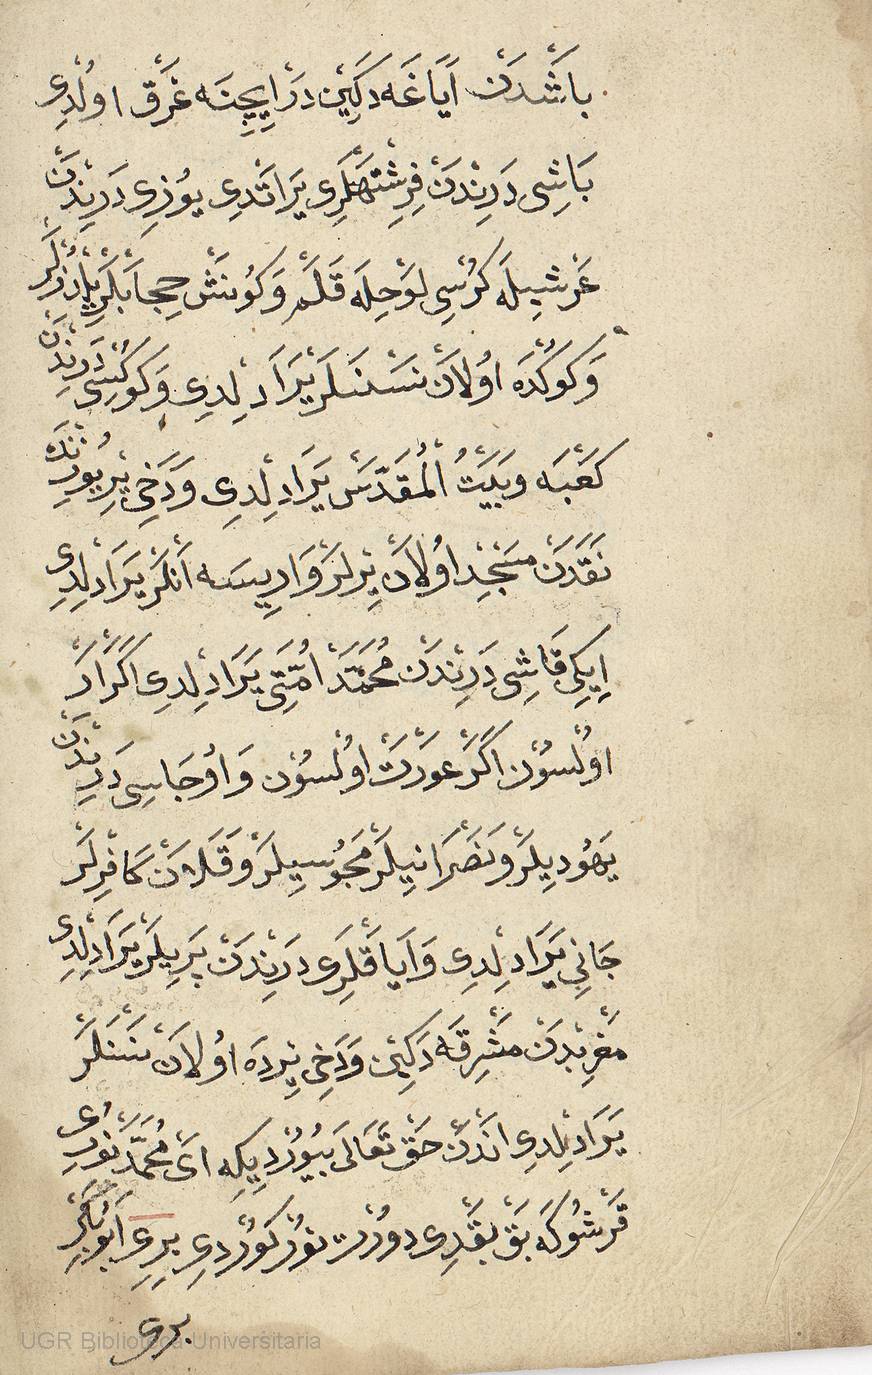 باشدن اياغه دكين در ايچنه غرق اولدى
باشى درندن فرشتهلرى يراتدى يوزى درندن
عرشيله كرسى لوحله قلم وكونش حجابلر يلدزلر
وكوكده اولان نسنلر يرادلدى وكوكسى درندن
كعبه وبيت المقدس يرادلدى ودخى ير يوزنك
نقدن مسجد اولان يرلر واريسه انلر يرادلدى
ايكى قاشى درندن محمد امتى يرادلدى اكر ار
اولسون اكر عورت اولسون واوجاسى درندن
يهوديلر ونصرانيلر مجوسيلر وقلان كافرلر
جانى يرادلدى واياقلرى درندن پريلر يرادلدى
مغربدن مشرقه دكين ودخى يرده اولان نسنلر
يرادلدى اندن حق تعالى بيورديكه اى محمد نورى
قرشوكه بق بقدى دورت نور كوردى برى ابوبكر
برى
UGR Biblioteca Universitaria